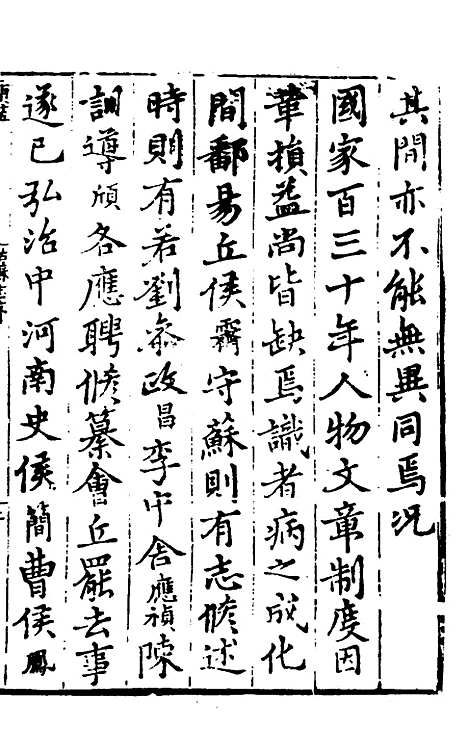 其間亦不能無異同焉况
國家百三十年人物文章制度因
革損益尚皆缺焉識者病之成化
間鄱昜丘侯霽守蘇則有志修述
時則有若劉叅政昌李中舍應禎陳
訓導頎各應聘修纂會丘罷去事
遂已弘治中河南史侯簡曹侯鳳